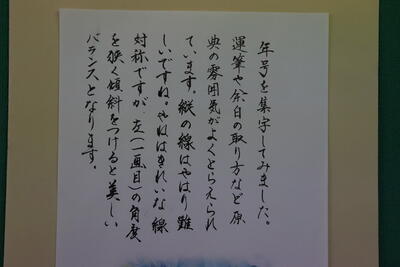 年号を集字してみました。
運筆や余白の取り方など原
典の雰囲気がよくとらえられ
ています。縦の線はやはり難
しいですね。やねはきれいな線
対称ですが、左(一画目)の角度
を狭く傾斜をつけると美しい
バランスとなります。